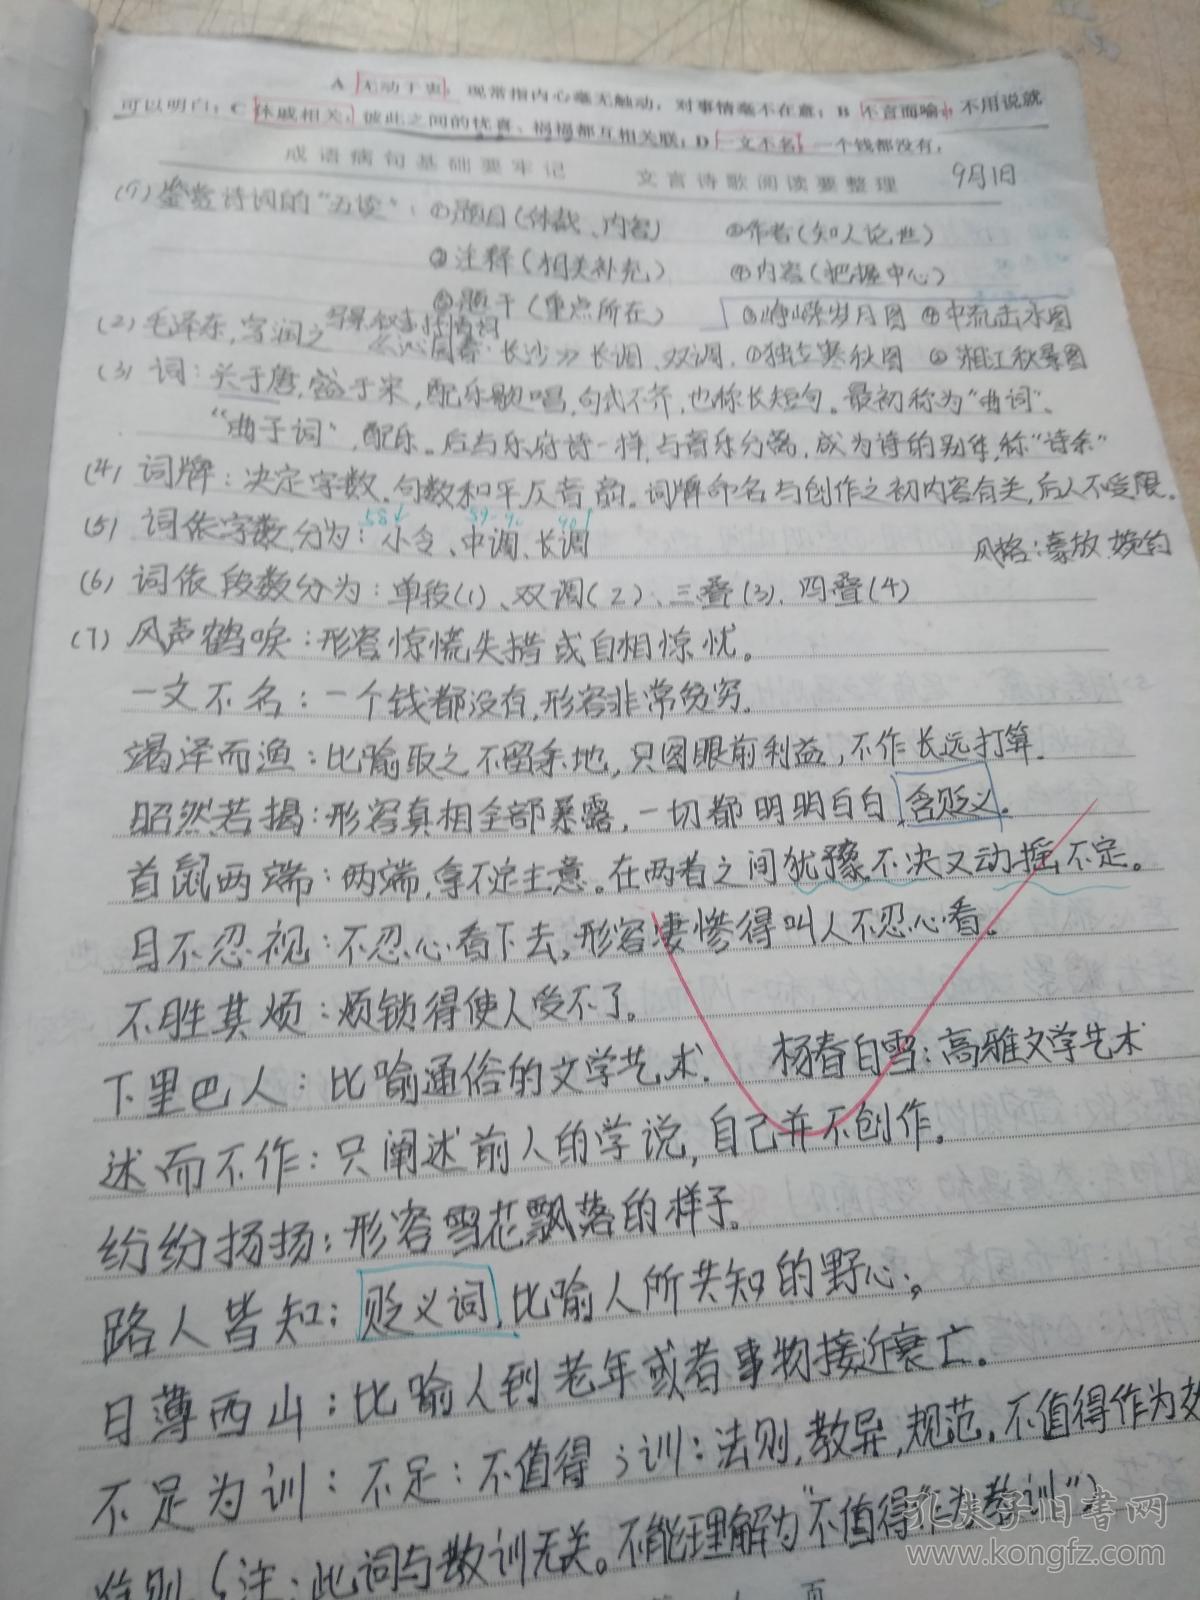 A 无动于衷，现常指内心毫无触动，对事情毫不在意；B 不言而喻，不用说就
可以明白；C 休戚相关，彼此之间的忧喜、祸福都互相关联；D 一文不名，一个钱都没有，
成语病句基础要牢记 文言诗歌阅读要整理 9月1日
(1) 鉴赏诗词的“五读”：①题目(体裁、内容) ②作者(知人论世)
③注释(相关补充) ④内容(把握中心)
⑤题干(重点所在) ③峥嵘岁月图 ④中流击水图
写景叙事抒情词
(2) 毛泽东,字润之《沁园春·长沙》长调、双调.①独立寒秋图 ②湘江秋景图
(3) 词:兴于唐,盛于宋,配乐歌唱,句式不齐,也称长短句。最初称为“曲词”、
“曲子词”,配乐。后与乐府诗一样,与音乐分离,成为诗的别体,称“诗余”
(4) 词牌:决定字数、句数和平仄音韵。词牌命名与创作之初内容有关,后人不受限。
58↓ 59-90 91
(5) 词依字数分为:小令、中调、长调 风格:豪放、婉约
(6) 词依段数分为:单段(1)、双调(2)、三叠(3)、四叠(4)
(7) 风声鹤唳:形容惊慌失措或自相惊忧。
一文不名:一个钱都没有,形容非常贫穷.
竭泽而渔:比喻取之不留余地,只图眼前利益,不作长远打算.
昭然若揭:形容真相全部暴露,一切都明明白白,含贬义.
首鼠两端:两端,拿不定主意。在两者之间犹豫不决又动摇不定。
目不忍视:不忍心看下去,形容凄惨得叫人不忍心看。
不胜其烦:烦锁得使人受不了。
下里巴人:比喻通俗的文学艺术. 杨春白雪:高雅文学艺术
述而不作:只阐述前人的学说,自己并不创作。
纷纷扬扬:形容雪花飘落的样子。
路人皆知:贬义词,比喻人所共知的野心。
日薄西山:比喻人到老年或者事物接近衰亡。
不足为训:不足:不值得;训:法则,教导,规范。不值得作为效
法则(注:此词与教训无关。不能理解为“不值得作为教训”)
页
孔夫子旧书网
www.kongfz.com